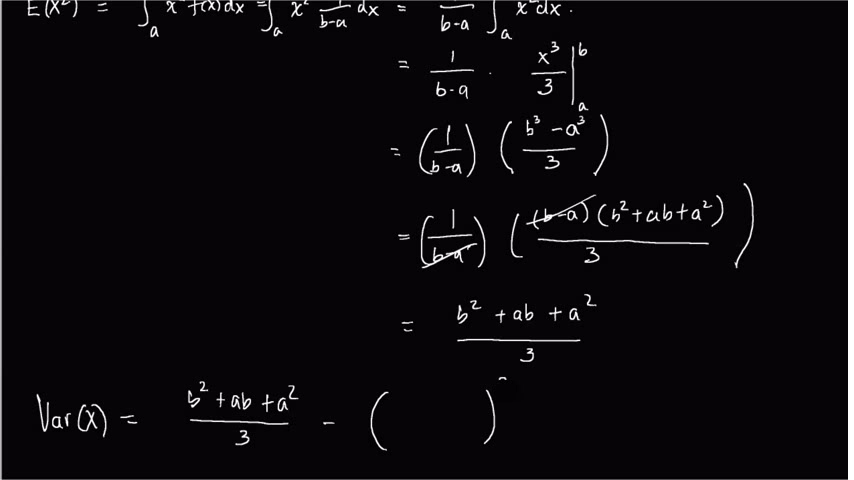 E(X²) = ∫ₐ x² f(x)dx = ∫ₐ x² 1/(b-a) dx = 1/(b-a) ∫ₐ x² dx.
= 1/(b-a) · x³/3 |ₐᵇ
= (1/(b-a)) ((b³-a³)/3)
= (1/(b-a)) ((b-a)(b²+ab+a²)/3)
= (b²+ab+a²)/3
Var(X) = (b²+ab+a²)/3 - ( )